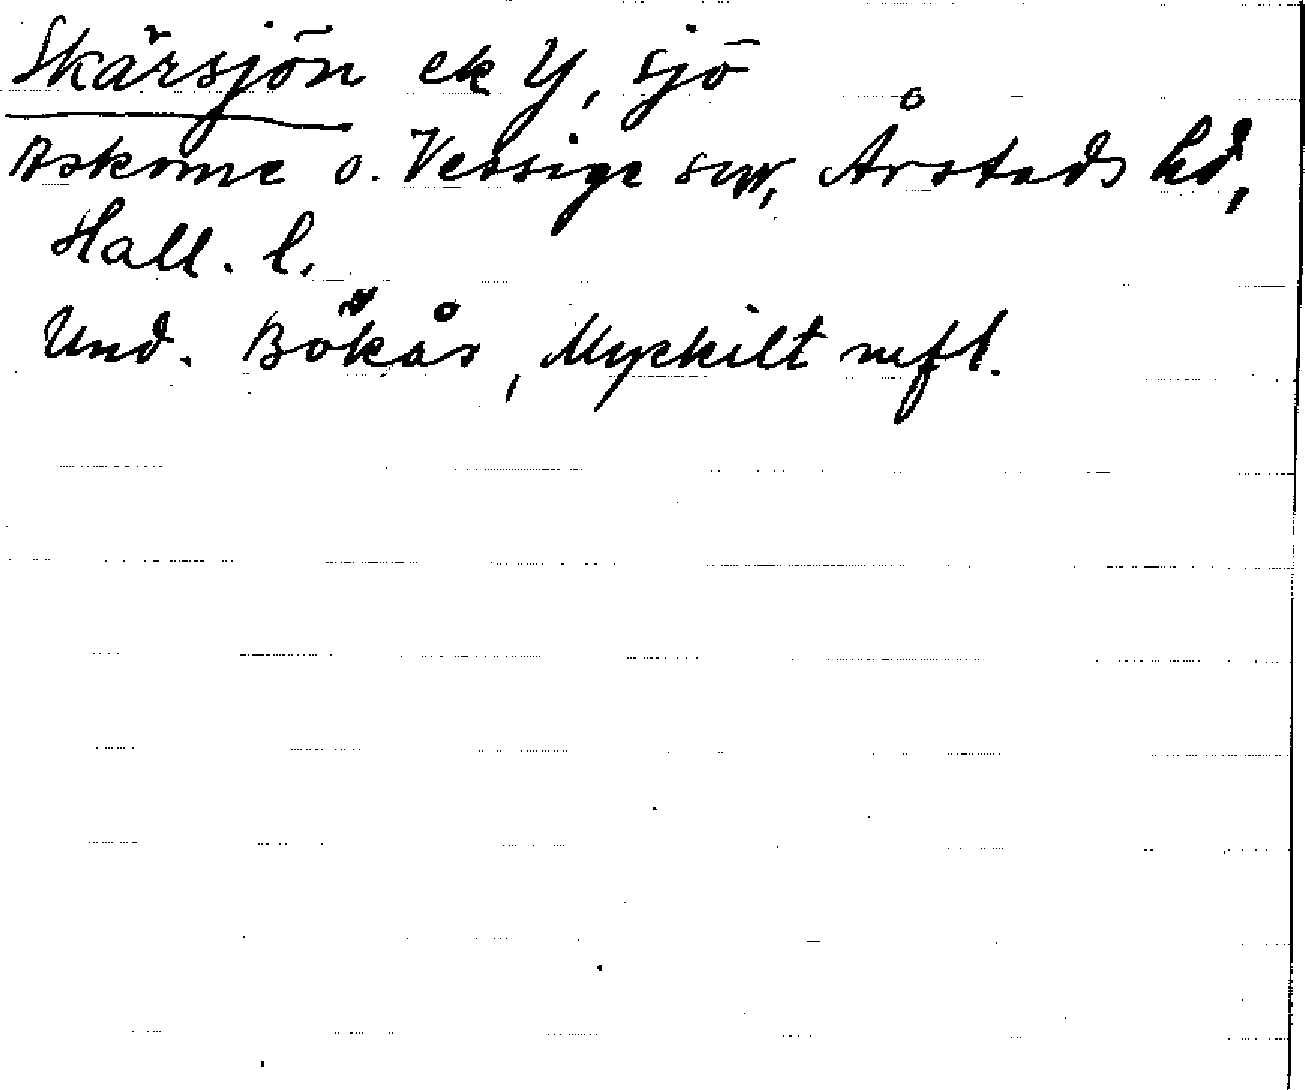 Skärsjön ek Y, sjö
Askome o. Vessige snr, Årstads hd,
Hall. l.
Und. Bökås, Myckilt